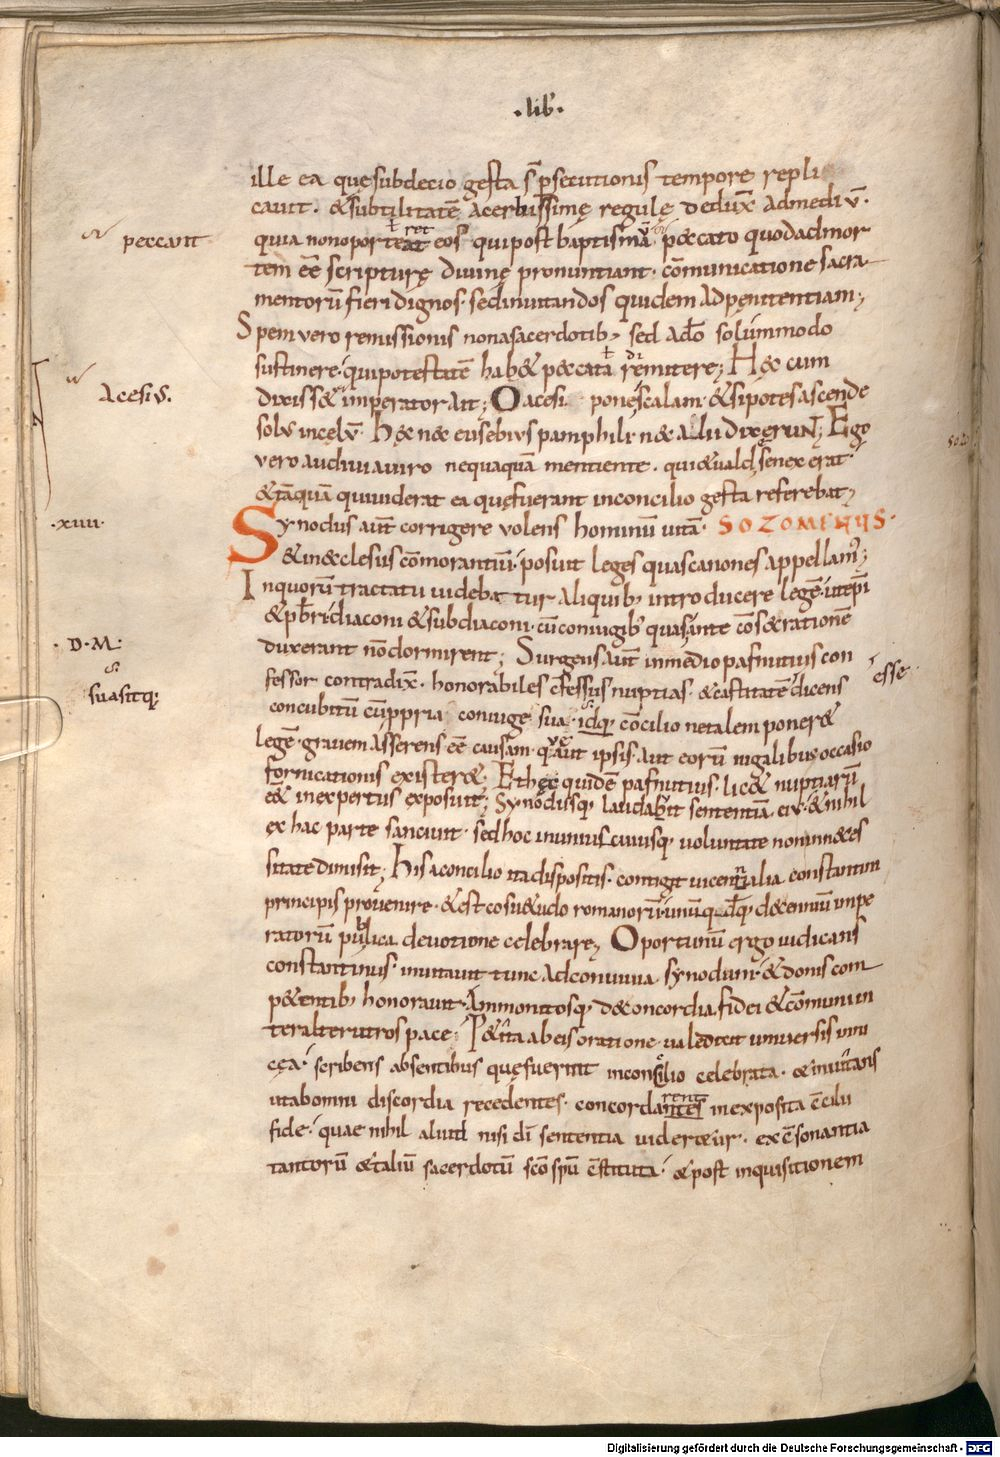 ·lib·
ille ea quę sub decio gesta s̄ p̄secutionis tempore repli
cauit. & subtilitatē acerbissimę regulę dedux̄ ad mediū.
peccant
quia non oporteat eos qui post baptismā peccato quod ad mor
tem eē scripturę diuinę pronuntiant. cōmunicatione sacra
mentorū fieri dignos. sed inuitandos quidem ad pęnitentiam;
Spem uero remissionis non a sacerdotib; sed a dō solummodo
sustinere. qui potestatē hab& peccata remittere; Hęc cum
Acesiꝰ.
dixiss& imperator ait; O acesi pone scalam. & si potes ascende
solꝰ in cęlū. Hęc nec eusebiꝰ pamphili nec alii dixęrunt; Ego
uero audiui a uiro nequaquā mentiente. qui & ualde senex erat.
& tāquā qui uiderat ea quę fuerant in concilio gesta referebat;
·xiiii·
Synodus aut̄ corrigere uolens hominū uitā. SOZOMENUS.
& in ecclesiis cōmorantiū. posuit leges quas canones appellam̄;
In quorū tractatu uidebatur aliquib; introducere legē. ut ep̄i
& pb̄ri diaconi & subdiaconi. cū coniugib; quas ante cōsecrationē
·D·M·
duxerant nō dormirent; Surgens aut̄ in medio pafnutius con
suasitq;
esse
fessor contradix̄. honorabiles cf̄essus nuptias. & castitatē dicens
concubitū cū ppria coniuge sua. idq; cōcilio ne talem poner&
legē. grauem asserens eē causam. quę aut ipsis. aut eorū iugalibus occasio
fornicationis exister&. Et hęc quidē pafnutius. lic& nuptiarū
eēt inexpertus exposuit; Synodusq; laudauit sententiā eiꝰ. & nihil
ex hac parte sanciuit. sed hoc in uniuscuiusq; uoluntate non in neces
sitate dimisit; His a concilio ita dispositis. contigit uicennalia constantini
principis prouenire. & est cosu&udo romanorū. unūquodq; decennium impe
ratorū publica deuotione celebrare; Oportunū ergo iudicans
constantinus. inuitauit tunc ad conuiuia synodum. & donis com
p&entib; honorauit. Ammonitosq; de concordia fidei & cōmuni in
ter alterutros pace. P&ita ab eis oratione. ualedicit uniuersis uni
cęa. scribens absentibus quę fuerint in consilio celebrata. & inuitans
ut abomni discordia recedentes. concordarent in exposita cōcilii
fide. quae nihil aliud nisi dī sententia uideretur. ex cōsonantia
tantorū & taliū sacerdotū scō spū cōstituta. & post inquisitionem
Digitalisierung gefördert durch die Deutsche Forschungsgemeinschaft - DFG